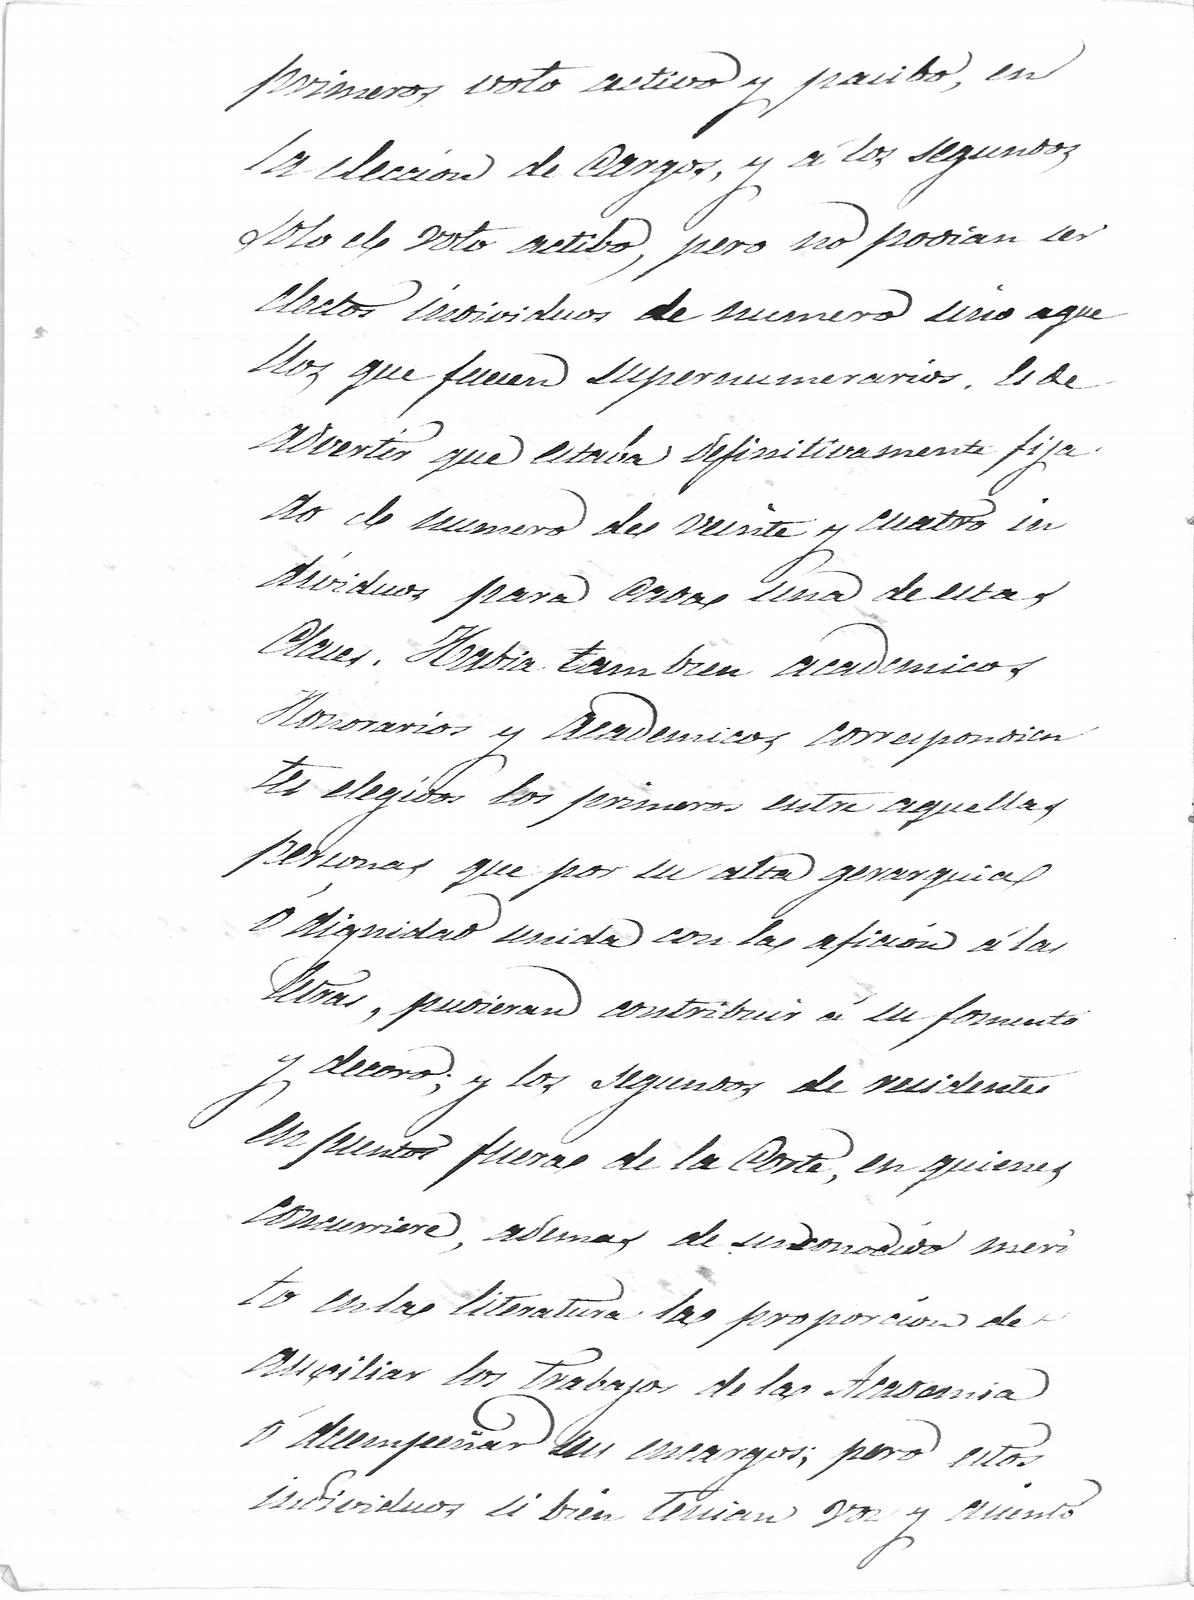 primeros voto activo y pasibo, en
la eleccion de Cargos, y á los segundos
solo el voto actibo, pero no podian ser
electos individuos de numero sino aque
llos que fuesen supernumerarios. Es de
advertir que estaba definitivamente fija
do el numero de veinte y cuatro in
dividuos para Cada una de estas
Clases. Habia tambien academicos
Honorarios y Academicos correspondien
tes elegidos los primeros entre aquellas
personas que por su alta gerarquia
ó dignidad unida con la aficion á las
letras, pudieran contribuir á su fomento
y decoro; y los segundos de residentes
en puntos fuera de la Corte, en quienes
concurriere, ademas de un conocido meri
to en la literatura la proporcion de
auxiliar los trabajos de la Academia
ó desempeñar sus encargos; pero estos
individuos si bien tenian voz y asiento